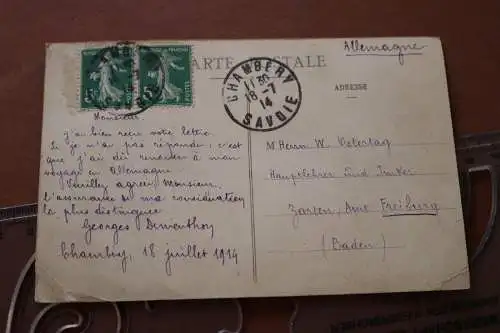 CARTE POSTALE
Allemagne
ADRESSE
CHAMBERY
11 30
18 - 7
14
SAVOIE
Monsieur
j'ai bien reçu votre lettre.
Si je n'ai pas répondu, c'est
que j'ai dû renoncer à mon
voyage en Allemagne
Veuillez agréer, Monsieur,
l'assurance de ma considération
la plus distinguée
Georges
Chambéry, 18 juillet 1914
M Herrn W.
Hauptlehrer und Imker
Zarten, Amt Freiburg
(Baden)